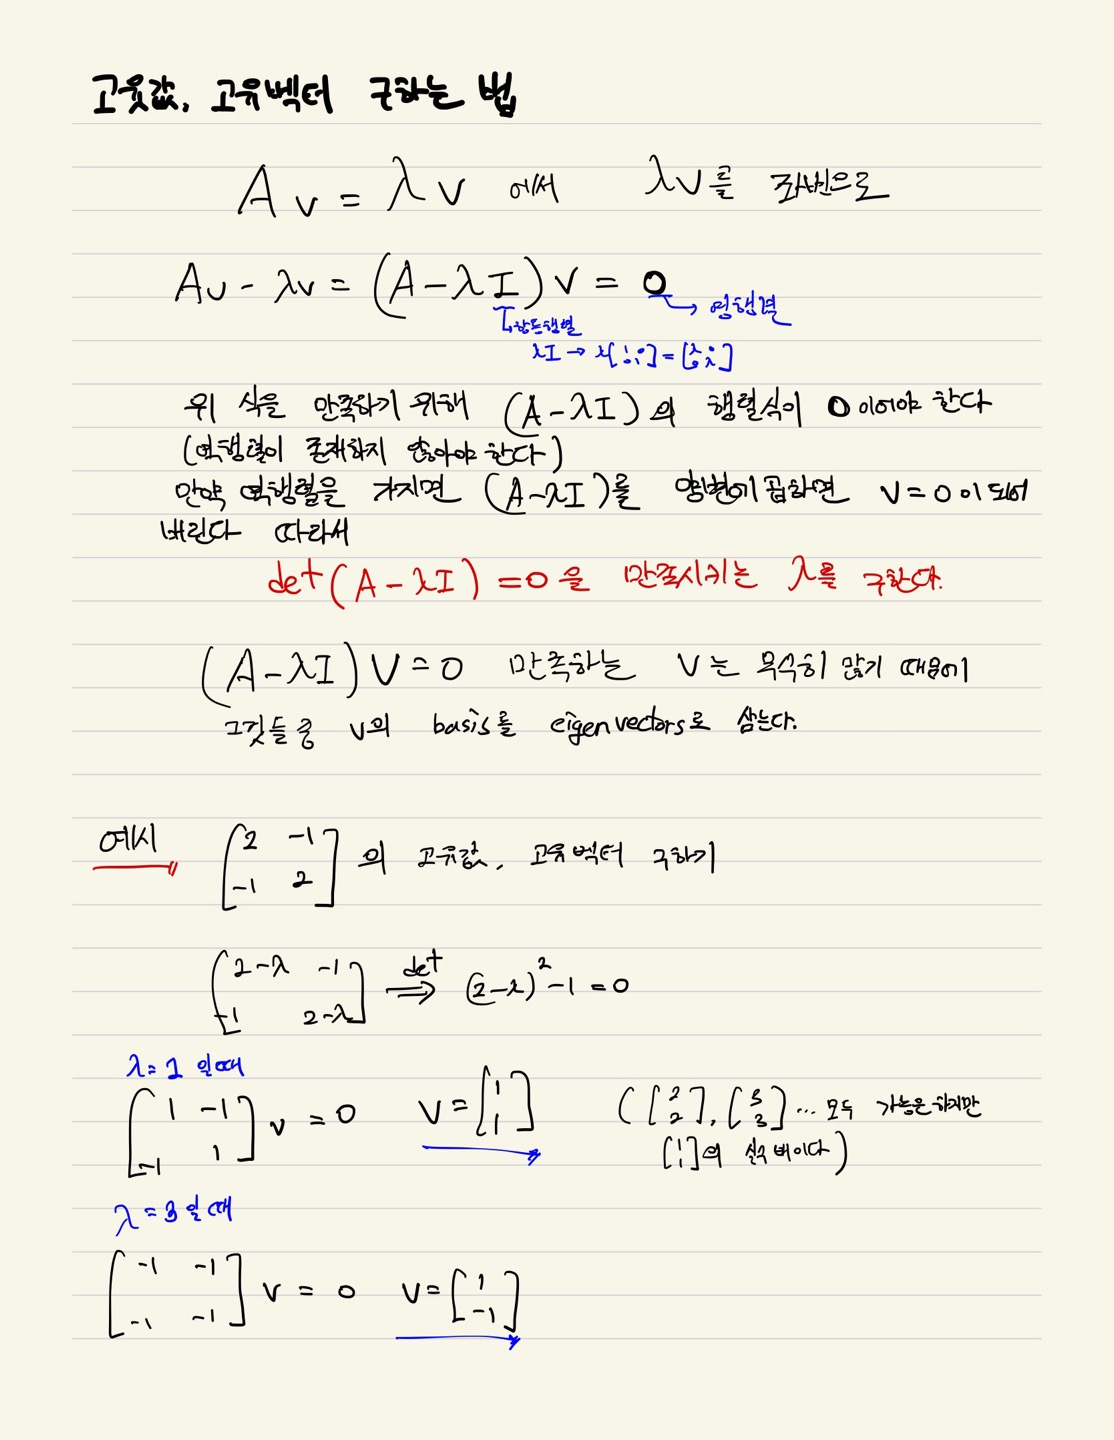 고윳값, 고유벡터 구하는 법
Av = λv 에서 λv를 좌변으로
Av - λv = (A-λI)v = 0
→ 영행렬
↳항등행렬
λI → λ[1 0; 0 1] = [λ 0; 0 λ]
위 식을 만족하기 위해 (A-λI)의 행렬식이 0이어야 한다
(역행렬이 존재하지 않아야 한다)
만약 역행렬을 가지면 (A-λI)를 양변에 곱하면 v=0이 되어
버린다 따라서
det(A-λI)=0을 만족시키는 λ를 구한다.
(A-λI)v=0 만족하는 v는 무수히 많기 때문에
그것들 중 v의 basis를 eigenvectors로 삼는다.
예시 [2 -1; -1 2]의 고유값, 고유벡터 구하기
[2-λ -1; -1 2-λ] det⇒ (2-λ)²-1=0
λ=1일때
[1 -1; -1 1]v = 0 v=[1; 1] ([2; 2], [3; 3]... 모두 가능은하지만
[1; 1]의 실수배이다)
λ=3일때
[-1 -1; -1 -1]v = 0 v=[1; -1]